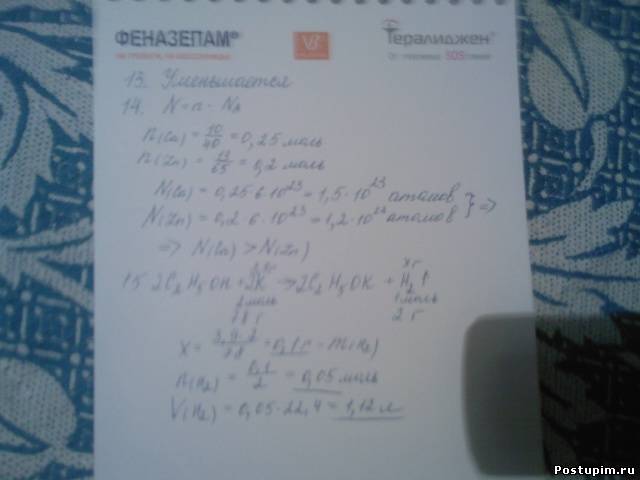 ФЕНАЗЕПАМ®
V8
Тералиджен®
13. Уменьшается
14. N = n · Nₐ
n(Ca) = 10/40 = 0,25 моль
n(Zn) = 13/65 = 0,2 моль
N(Ca) = 0,25·6·10²³ = 1,5·10²³ атомов
N(Zn) = 0,2·6·10²³ = 1,2·10²³ атомов } =>
=> N(Ca) > N(Zn)
x г
15 2C₂H₅OH + 2K => 2C₂H₅OK + H₂↑
2 моль 1 моль
78 г 2 г
x = 3,9·2/78 = 0,1 г - m(H₂)
n(H₂) = 0,1/2 = 0,05 моль
V(H₂) = 0,05·22,4 = 1,12 л
Postupim.ru